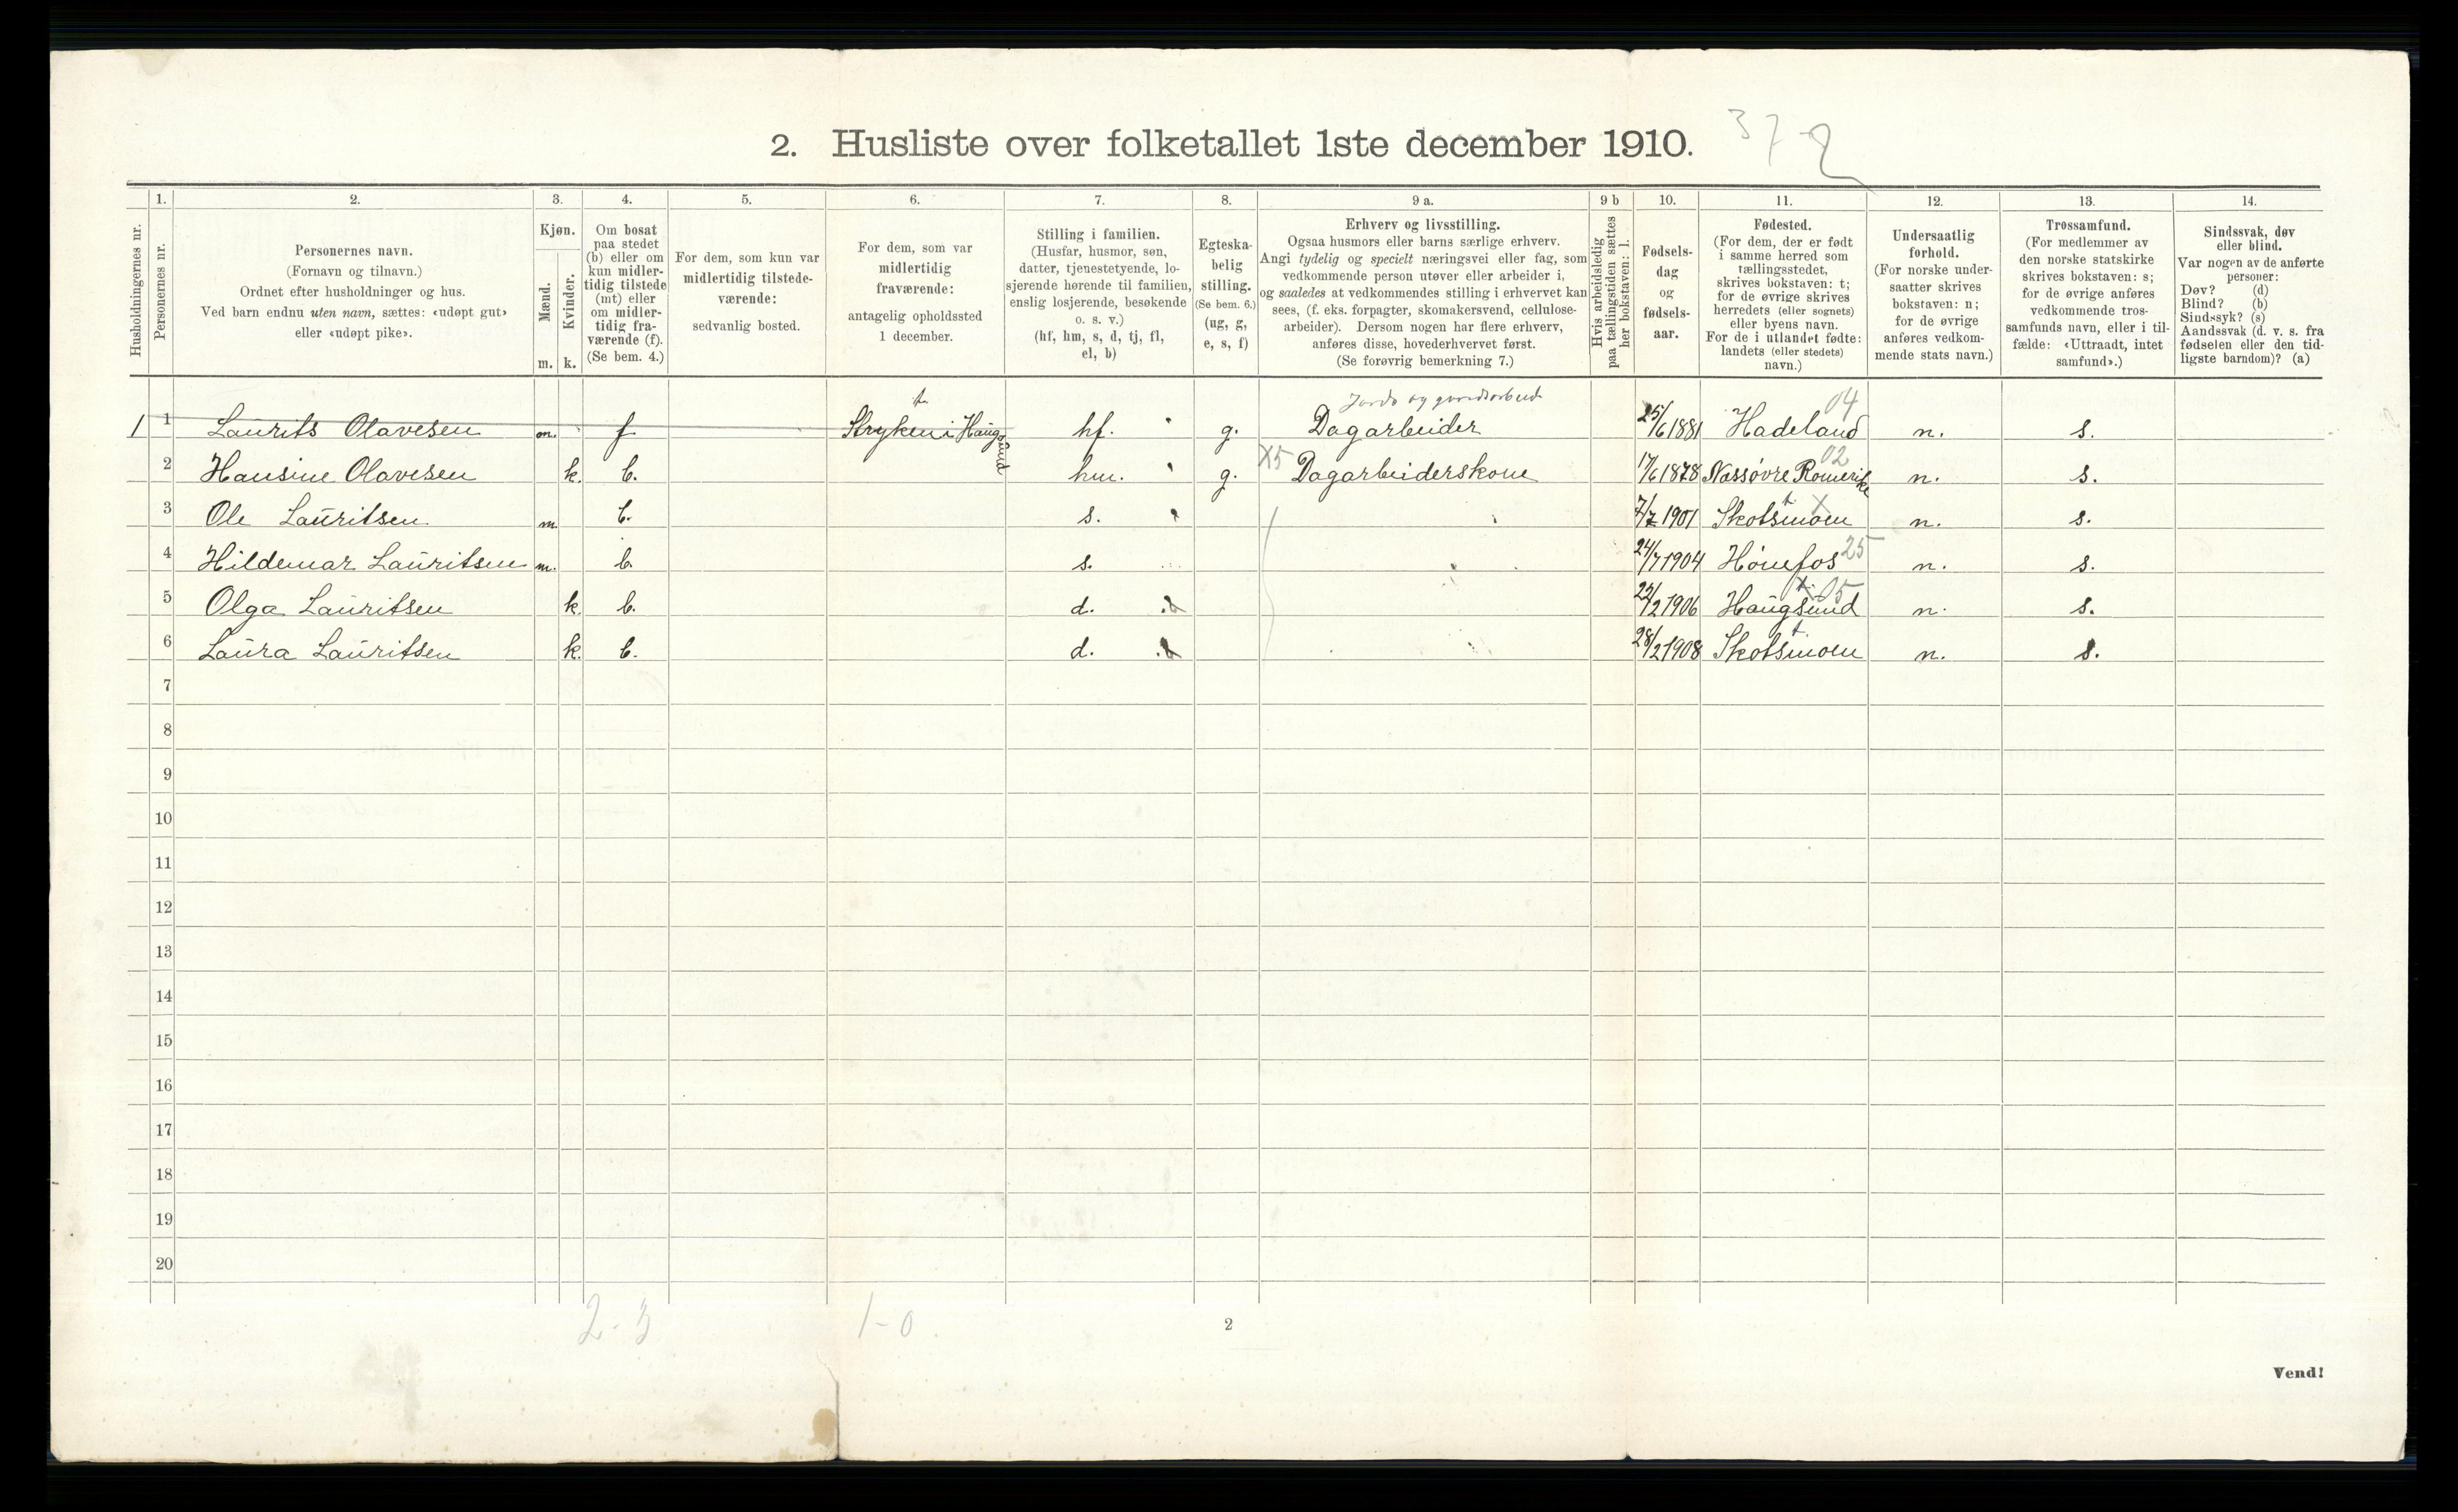 2. Husliste over folketallet 1ste december 1910.
37-2
Husholdningernes nr.
1.
Personernes nr.
2.
Personernes navn.
(Fornavn og tilnavn.)
Ordnet efter husholdninger og hus.
Ved barn endnu uten navn, sættes: «udøpt gut»
eller «udøpt pike».
3.
Kjøn.
Mænd.
Kvinder.
m. k.
4.
Om bosat
paa stedet
(b) eller om
kun midler-
tidig tilstede
(mt) eller
om midler-
tidig fra-
værende (f).
(Se bem. 4.)
5.
For dem, som kun var
midlertidig tilstede-
værende:
sedvanlig bosted.
6.
For dem, som var
midlertidig
fraværende:
antagelig opholdssted
1 december.
7.
Stilling i familien.
(Husfar, husmor, søn,
datter, tjenestetyende, lo-
sjerende hørende til familien,
enslig losjerende, besøkende
o. s. v.)
(hf, hm, s, d, tj, fl,
el, b)
8.
Egteska-
belig
stilling.
(Se bem. 6.)
(ug, g,
e, s, f)
9 a.
Erhverv og livsstilling.
Ogsaa husmors eller barns særlige erhverv.
Angi tydelig og specielt næringsvei eller fag, som
vedkommende person utøver eller arbeider i,
og saaledes at vedkommendes stilling i erhvervet kan
sees, (f. eks. forpagter, skomakersvend, cellulose-
arbeider). Dersom nogen har flere erhverv,
anføres disse, hovederhvervet først.
(Se forøvrig bemerkning 7.)
9 b
Hvis arbeidsledig
paa tællingstiden sættes
her bokstaven: l.
10.
Fødsels-
dag
og
fødsels-
aar.
11.
Fødested.
(For dem, der er født
i samme herred som
tællingsstedet,
skrives bokstaven: t;
for de øvrige skrives
herredets (eller sognets)
eller byens navn.
For de i utlandet fødte:
landets (eller stedets)
navn.)
12.
Undersaatlig
forhold.
(For norske under-
saatter skrives
bokstaven: n;
for de øvrige
anføres vedkom-
mende stats navn.)
13.
Trossamfund.
(For medlemmer av
den norske statskirke
skrives bokstaven: s;
for de øvrige anføres
vedkommende tros-
samfunds navn, eller i til-
fælde: «Uttraadt, intet
samfund».)
14.
Sindssvak, døv
eller blind.
Var nogen av de anførte
personer:
Døv? (d)
Blind? (b)
Sindssyk? (s)
Aandssvak (d. v. s. fra
fødselen eller den tid-
ligste barndom)? (a)
t. Jords og gaardsarbeid 04
1 1 Laurits Olavesen m. f Stryken i Haugsund hf. g. Dagarbeider 25/6 1881 Hadeland n. s.
X5 02
2 Hansine Olavesen k. b. hm. g. Dagarbeiderskone 17/6 1878 Næssøvre Romerike n. s.
t X
3 Ole Lauritsen m. b. s. 7/7 1901 Skotsmoen n. s.
25
4 Hildemar Lauritsen m. b. s. 24/7 1904 Hønefos n. s.
X 05
5 Olga Lauritsen k. b. d. 22/2 1906 Haugsund n. s.
t
6 Laura Lauritsen k. b. d. 28/2 1908 Skotsmoen n. s.
7
8
9
10
11
12
13
14
15
16
17
18
19
20
2-3 1-0
2
Vend!